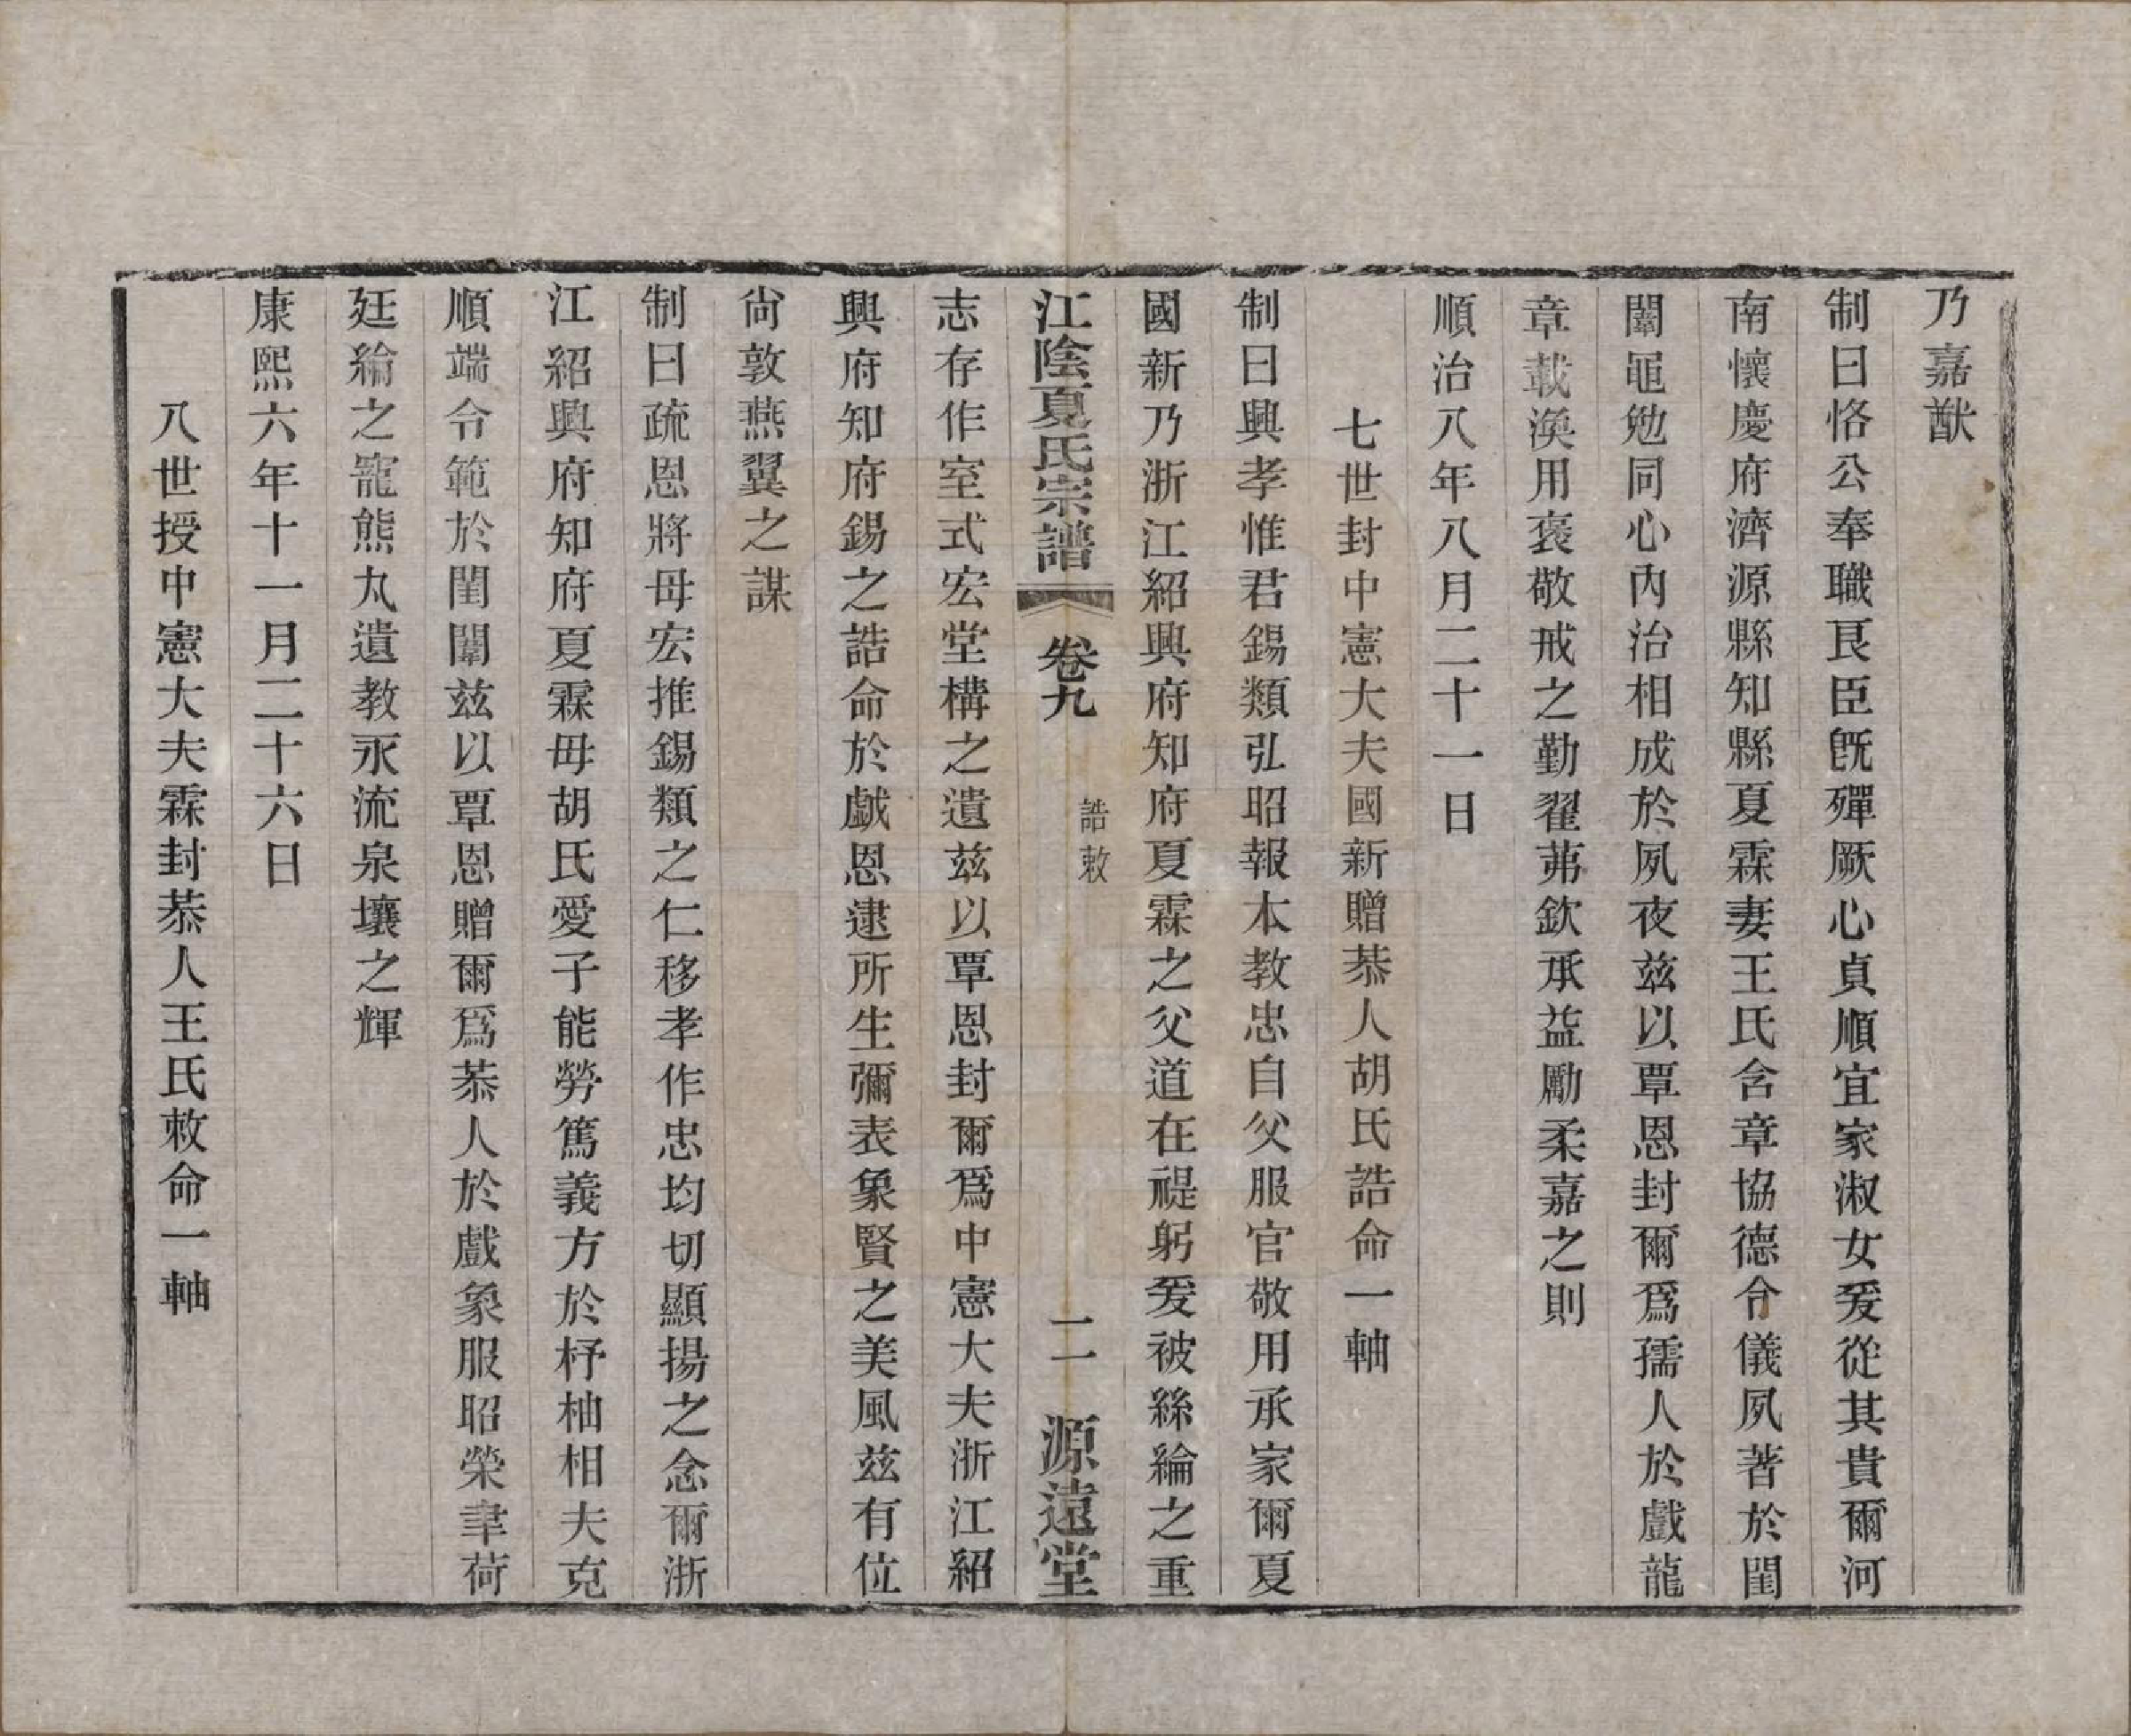 乃嘉猷
制曰恪公奉職艮臣旣殫厥心貞順宜家淑女爰從其貴爾河
南懷慶府濟源縣知縣夏霖妻王氏含章協德令儀夙著於閨
闈黽勉同心內治相成於夙夜兹以覃恩封爾爲孺人於戲龍
章載渙用褒敬戒之勤翟茀欽承益勵柔嘉之則
順治八年八月二十一日
七世封中憲大夫國新贈恭人胡氏誥命一軸
制曰興孝惟君錫類弘昭報本教忠自父服官敬用承家爾夏
國新乃浙江紹興府知府夏霖之父道在禔躬爰被絲綸之重
江陰夏氏宗譜 卷九 誥敕 二 源遠堂
志存作室式宏堂構之遺兹以覃恩封爾爲中憲大夫浙江紹
興府知府錫之誥命於戱恩逮所生彌表象賢之美風兹有位
尙敦燕翼之謀
制曰疏恩將母宏推錫類之仁移孝作忠均切顯揚之念爾浙
江紹興府知府夏霖母胡氏愛子能勞篤義方於杼柚相夫克
順端令範於閨闈兹以覃恩贈爾爲恭人於戲象服昭榮聿荷
廷綸之寵熊丸遺教永流泉壤之輝
康熙六年十一月二十六日
八世授中憲大夫霖封恭人王氏敕命一軸